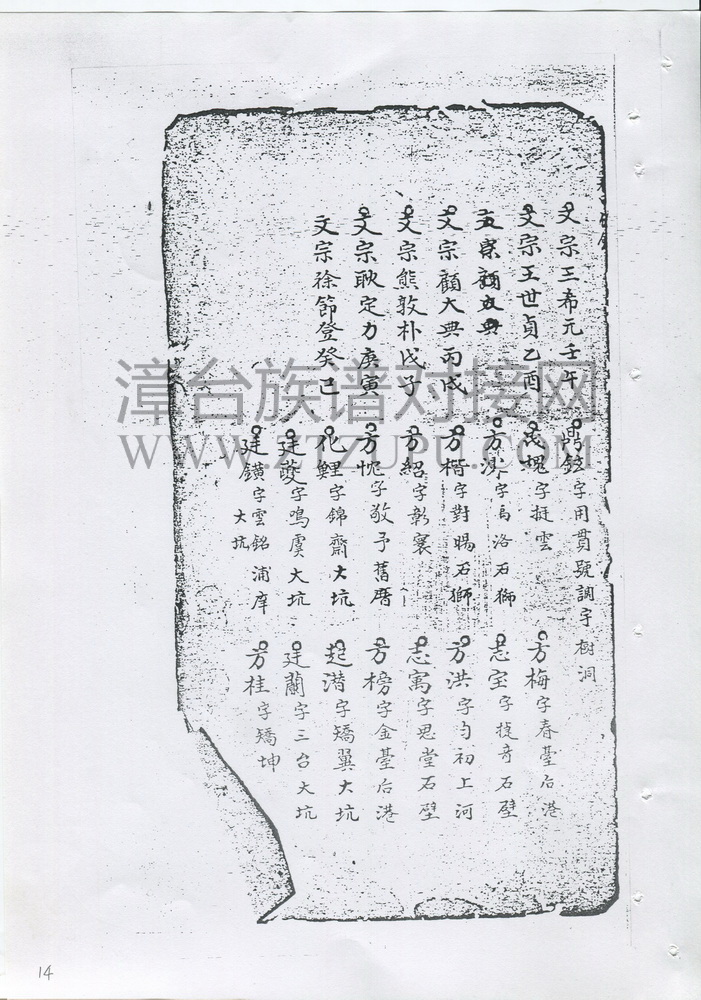 文宗王希元壬午
文宗王世貞乙酉
文宗顧大典
文宗顧大典丙戌
文宗熊敦朴戊子
文宗耿定力庚寅
文宗徐節登癸巳
鼎鉉字用貫號調宇 樹洞
茂槐字挺雲
方沙字烏洛石獅
方楷字對暘石獅
方紹字彰寰
方忱字敬予舊厝
化鯉字錦齋大坑
廷蘷字鳴虞大坑
廷鐄字雲銘 浦庠
大坑
方梅字春臺后港
志宝字捷奇石壁
方洪字匀初上河
志寓字思堂石壁
方榜字金臺后港
起潜字矯翼大坑
廷蘭字三台大坑
方桂字矯坤
漳台族谱对接网
WWW.ZTZUPU.COM
14